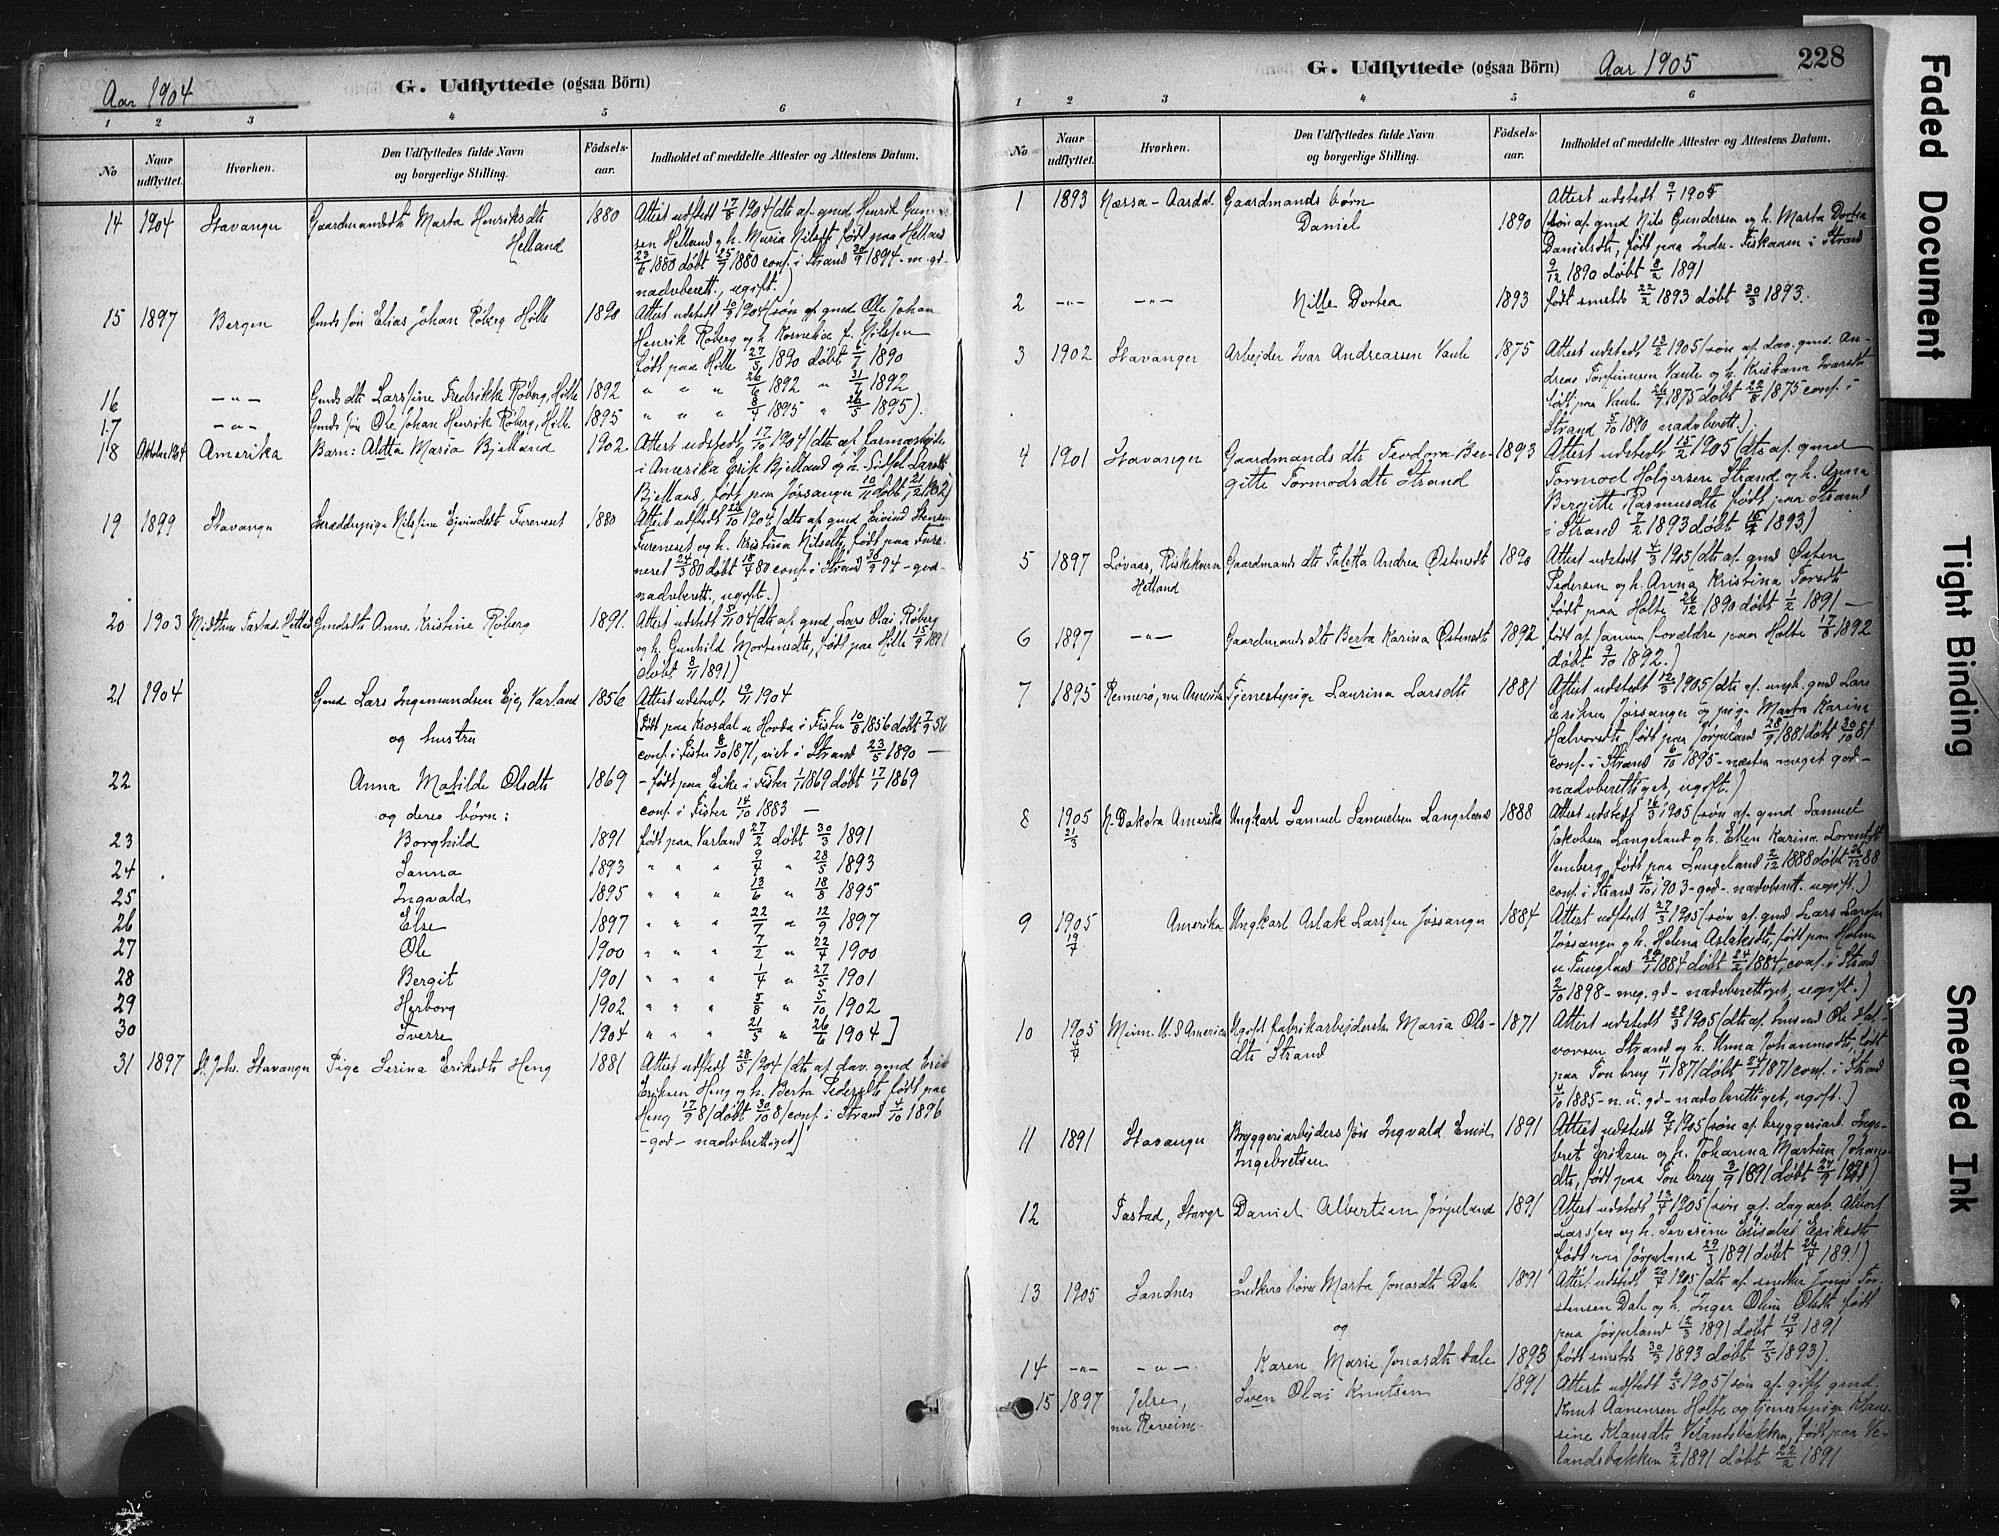 Aar 1904
G. Udflyttede (ogsaa Börn)
1 2 3 4 5 6
No
Naar udflyttet.
Hvorhen.
Den Udflyttedes fulde Navn
og borgerlige Stilling.
Födsels-
aar.
Indholdet af meddelte Attester og Attestens Datum.
14 1904 Stavanger Gaardmandsdtr Marta Henriksdtr 1880 Attest udstedt 17/8 1904 (dtr af gmd Henrik Gunder-
Helland sen Helland og h. Maria Nilsdtr født paa Helland
23/6 1880 døbt 25/7 1880 conf. i Strand 30/9 1894 - m. gd.
nadvberett., ugift.)
15 1897 Bergen Gmds søn Elias Johan Røberg Holte 1890 Attest udstedt 10/9 1904 (søn af gmd Ole Johan
Henrik Røberg og h. Kornelia f. Nilssen
født paa Holte 27/5 1890 døbt 6/7 1890
16 -"- Gmds dtr Larssine Fredrikke Røberg, Holte 1892 " " " 26/6 1892 " 31/7 1892
17 -"- Gmds søn Ole Johan Henrik Røberg, Holte 1895 " " " 8/4 1895 " 26/5 1895).
18 Oktober 1904 Amerika Barn: Aletta Maria Bjelland 1902 Attest udstedt 17/10 1904 (dtr af farmarbejder
i Amerika Erik Bjelland og h. Sidsel Larsdtr
Bjelland, født paa Jøssanger 10/11 døbt 21/12 1902)
19 1899 Stavanger Skrædderpige Nilssine Ejvindsdtr Fureneset 1880 Attest udstedt 24/10 1904 (dtr af gmd Eivind Stensen
Fureneset og h. Kristina Nilsdtr, født paa Fure-
neset 22/3 80 døbt 18/4 80 conf. i Strand 30/9 94 - god -
nadvberett., ugift.)
20 1903 Midttun Tastad Hetland Gmdsdtr Anne Kristine Røberg 1891. Attest udstedt 5/11 04 (dtr af gmd. Lars Olai Røberg
og h. Gunhild Mortensdtr, født paa Holte 15/9 1891
døbt 8/11 1891)
21 1904 Gmd Lars Ingemundsen Eje, Varland 1856 Attest udstedt 19/11 1904
og hustru [født paa Krosdal u Hovda i Fister 10/8 1856 døbt 7/9 56
conf. i Fister 8/10 1871, viet i Strand 23/5 1890 —
22 Anna Matilde Olsdtr 1869 - født paa Eike i Fister 1/1 1869 døbt 17/1 1869
og deres børn: conf. i Fister 14/10 1883 —
23 Borghild 1891 født paa Varland 27/2 døbt 30/3 1891
24 Sanna 1893 " " " 9/4 " 28/5 1893
25 Ingvald 1895 " " " 13/6 " 18/8 1895
26 Else 1897 " " " 22/7 " 12/9 1897
27 Ole 1900 " " " 7/2 " 22/4 1900
28 Bergit 1901 " " " 1/4 " 27/5 1901
29 Herborg 1902 " " " 5/8 " 5/10 1902
30 Sverre 1904 " " " 21/5 " 26/6 1904]
31 1897 St. Johs. Stavanger Pige Serina Eriksdtr Heng 1881 Attest udstedt 28/5 1904 (dtr af dav. gmd Erik
Eriksen Heng og h. Berta Pedersdtr født paa
Heng 17/9 81 døbt 30/10 81 conf. i Strand 4/10 1896
- god - nadvbrettiget)
G. Udflyttede (ogsaa Börn)
Aar 1905
228
1 2 3 4 5 6
No
Naar udflyttet.
Hvorhen.
Den Udflyttedes fulde Navn
og borgerlige Stilling.
Födsels-
aar.
Indholdet af meddelte Attester og Attestens Datum.
1 1893 Næssa - Aardal Gaardmands børn Attest udstedt 9/1 1905
Daniel 1890 søn af gmd Nils Gundersen og h. Marta Dortea
Danielsdtr, født paa Indre-Fiskaaen i Strand
9/12 1890 døbt 8/2 1891
2 -"- -"- Nille Dortea 1893 født smstds 22/2 1893 døbt 30/3 1893.
3 1902 Stavanger Arbejder Ivar Andreassen Vaule 1875 Attest udstedt 13/2 1905 (søn af dav. gmd. An-
dreas Torfinnsen Vaule og h. Kristiana Ivarsdtr
født paa Vaule 26/7 1875 døbt 22/8 1875 conf. i
Strand 5/10 1890 nadvberett.).
4 1901 Stavanger Gaardmands dtr Teodora Ber- 1893 Attest udstedt 15/2 1905 (dtr af gmd
gitte Tormodsdtr Strand Tormod Holgersen Strand og h. Anna
Bergitte Rasmusdtr født paa Strand
i Strand 7/2 1893 døbt 16/4 1893)
5 1897 Løvaas, Riskekvern Gaardmands dtr Taletta Andrea Østensdtr 1890 Attest udstedt 4/3 1905 (dtr af gmd Østen
Hetland Pedersen og h. Anna Kristina Toresdtr
født paa Holte 26/12 1890 døbt 1/2 1891 —
6 1897 -"- Gaardmands dtr Berta Karina Østensdtr 1892 født af samme forældre paa Holte 17/8 1892
døbt 9/10 1892.)
7 1895 Rennesø, nu Amerika Tjenestepige Laurina Larsdtr 1881 Attest udstedt 12/3 1905 (dtr af ungk. gmd Lars
Eriksen Jøssanger og pige Marta Karine
Halvorsdtr født paa Jørpeland 28/9 1881 døbt 30/10 81
conf. i Strand 6/10 1895 - næsten meget god -
nadvberettiget, ugift.)
8 1905 N. Dakota Amerika Ungkarl Samuel Samuelsen Langeland 1888 Attest udstedt 16/3 1905 (søn af gmd Samuel
21/3 Jakobsen Langeland og h. Ellen Karina Lorentsdtr
Vemberg, født paa Langeland 2/12 1888 døbt 26/12 88
conf. i Strand 4/10 1903 - god - nadvberett. ugift.)
9 1905 Amerika Ungkarl Aslak Larssen Jøssanger 1884 Attest udstedt 27/3 1905 (søn af gmd Lars Larssen
19/7 Jøssanger og h. Helena Aslaksdtr, født paa Holmen
u Tungland 22/1 1884 døbt 24/2 1884, conf. i Strand
2/10 1898 - meg. gd - nadvberettiget, ugift.)
10 1905 Minn. U. S. America Ugift fabrikarbejderske Maria Ols- 1871 Attest udstedt 22/3 1905 (dtr af husmd Ole Hal-
4/4 dtr Strand vorsen Strand og h. Anna Johannesdtr, født
paa Tou brug 11/1 1871 døbt 24/1 1871 conf. i Strand
4/10 1885 - n. u. gd - nadvberettiget, ugift.)
11 1891 Stavanger Bryggeriarbejders søn Ingvald Emil 1891 Attest udstedt 9/4 1905 (søn af bryggeriarb. Inge-
Ingebretsen bret Eriksen og h. Johanna Martine Johans-
dtr, født paa Tou brug 3/9 1891 døbt 27/9 1891)
12 Tastad, Stavgr Daniel Albertsen Jørpeland 1891 Attest udstedt 13/4 1905 (søn af dagarb. Albert
Larssen og h. Severine Elisabet Eriksdtr
født paa Jørpeland 29/3 1891 døbt 26/4 1891)
13 1905 Sandnes Snedkers børn Marta Jonasdtr Dale 1891 Attest udstedt 20/4 1905 (dtr af snedker Jonas Tor-
stensen Dale og h. Inger Oline Olsdtr født
og paa Jørpeland 12/3 1891 døbt 19/4 1891
14 -"- -"- Karen Marie Jonasdtr Dale 1893 født smstds 30/3 1893 døbt 7/5 1893).
15 1897 Jelse, Sven Olai Knutsen 1891 Attest udstedt 6/5 1905 (søn af gift gmd
nu Roveim. Knut Aanensen Holte og tjenestepige Klaus-
sine Klausdtr Velandsbakken, født paa Ve-
landsbakken 3/2 1891 døbt 22/2 1891
Faded Document
Tight Binding
Smeared Ink